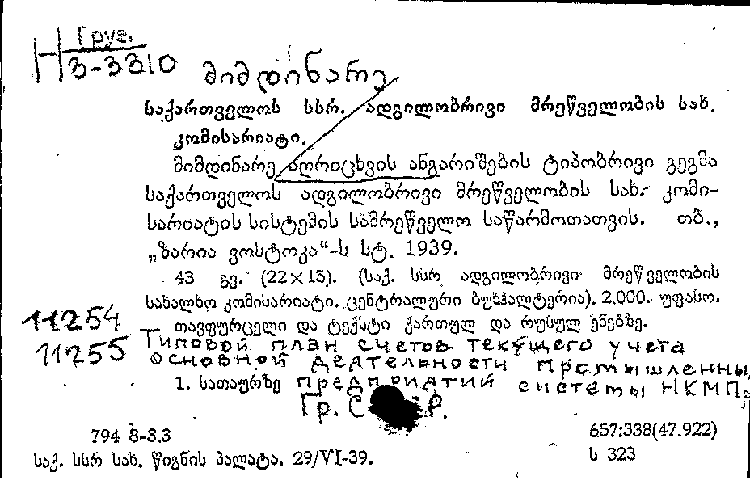 Груз.
Н 3-3310
მიმდინარე
საქართველოს სსრ. ადგილობრივი მრეწველობის სახ.
კომისარიატი.
მიმდინარე აღრიცხვის ანგარიშების ტიპობრივი გეგმა
საქართველოს ადგილობრივი მრეწველობის სახ. კომი-
სარიატის სისტემის სამრეწველო საწარმოთათვის. თბ.,
„ზარია ვოსტოკა“-ს სტ. 1939.
43 გვ. (22×15). (საქ. სსრ ადგილობრივი მრეწველობის
სახალხო კომისარიატი, ცენტრალური ბუხჰალტერია). 2.000. უფასო.
11254 თავფურცელი და ტექსტი ქართულ და რუსულ ენებზე.
11255 Типовой план счетов текущего учета
основной деятельности промышленных
1. სათაურზე предприятий системы НКМП
Гр. С Р.
794 8-3.3 657:338(47.922)
საქ. სსრ სახ. წიგნის პალატა. 29/VI-39. ს 323